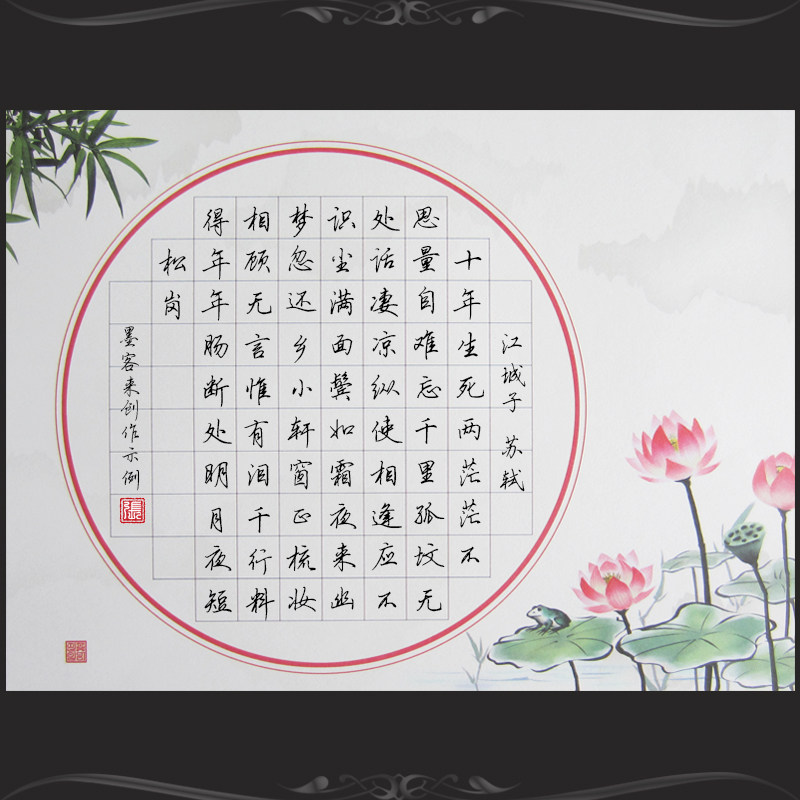 江城子 苏轼
十年生死两茫茫不
思量自难忘千里孤坟无
处话凄凉纵使相逢应不
识尘满面鬓如霜夜来幽
梦忽还乡小轩窗正梳妆
相顾无言惟有泪千行料
得年年肠断处明月夜短
松岗
墨客来创作示例